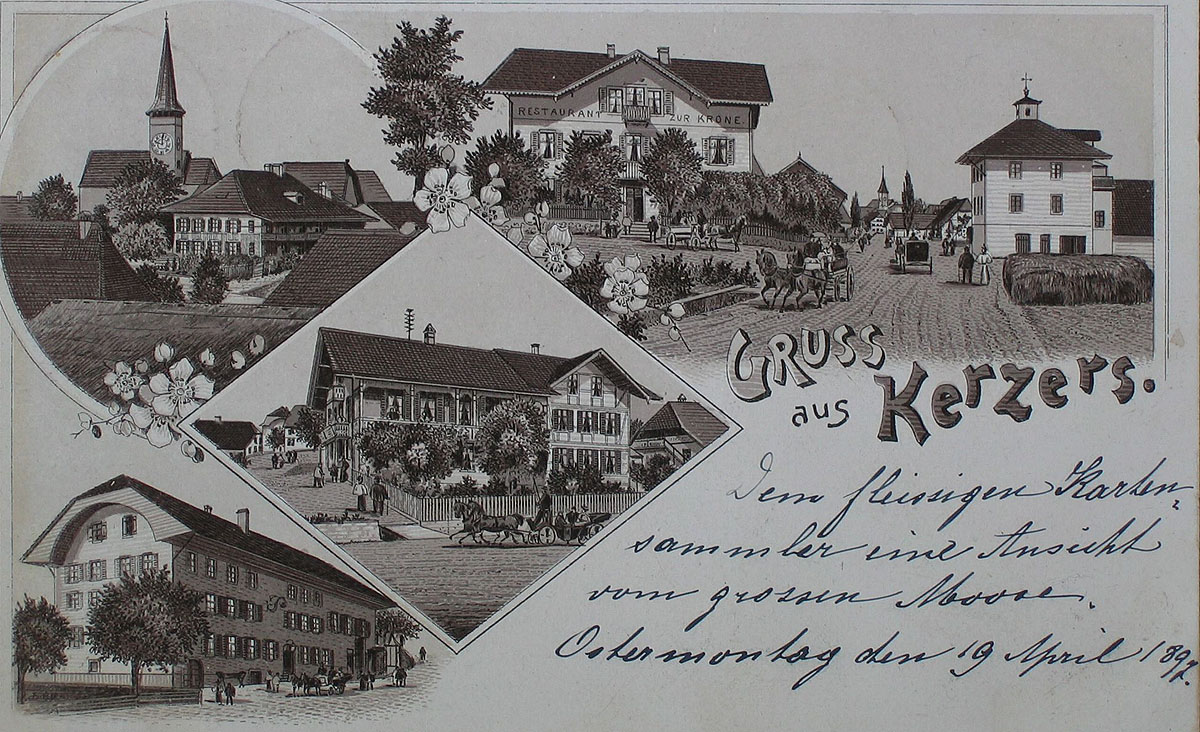 RESTAURANT ZUR KRONE.
GRUSS
aus Kerzers.
Dem fleissigen Karten-
sammler eine Ansicht
vom grossen Moose.
Ostermontag den 19 April 1897.